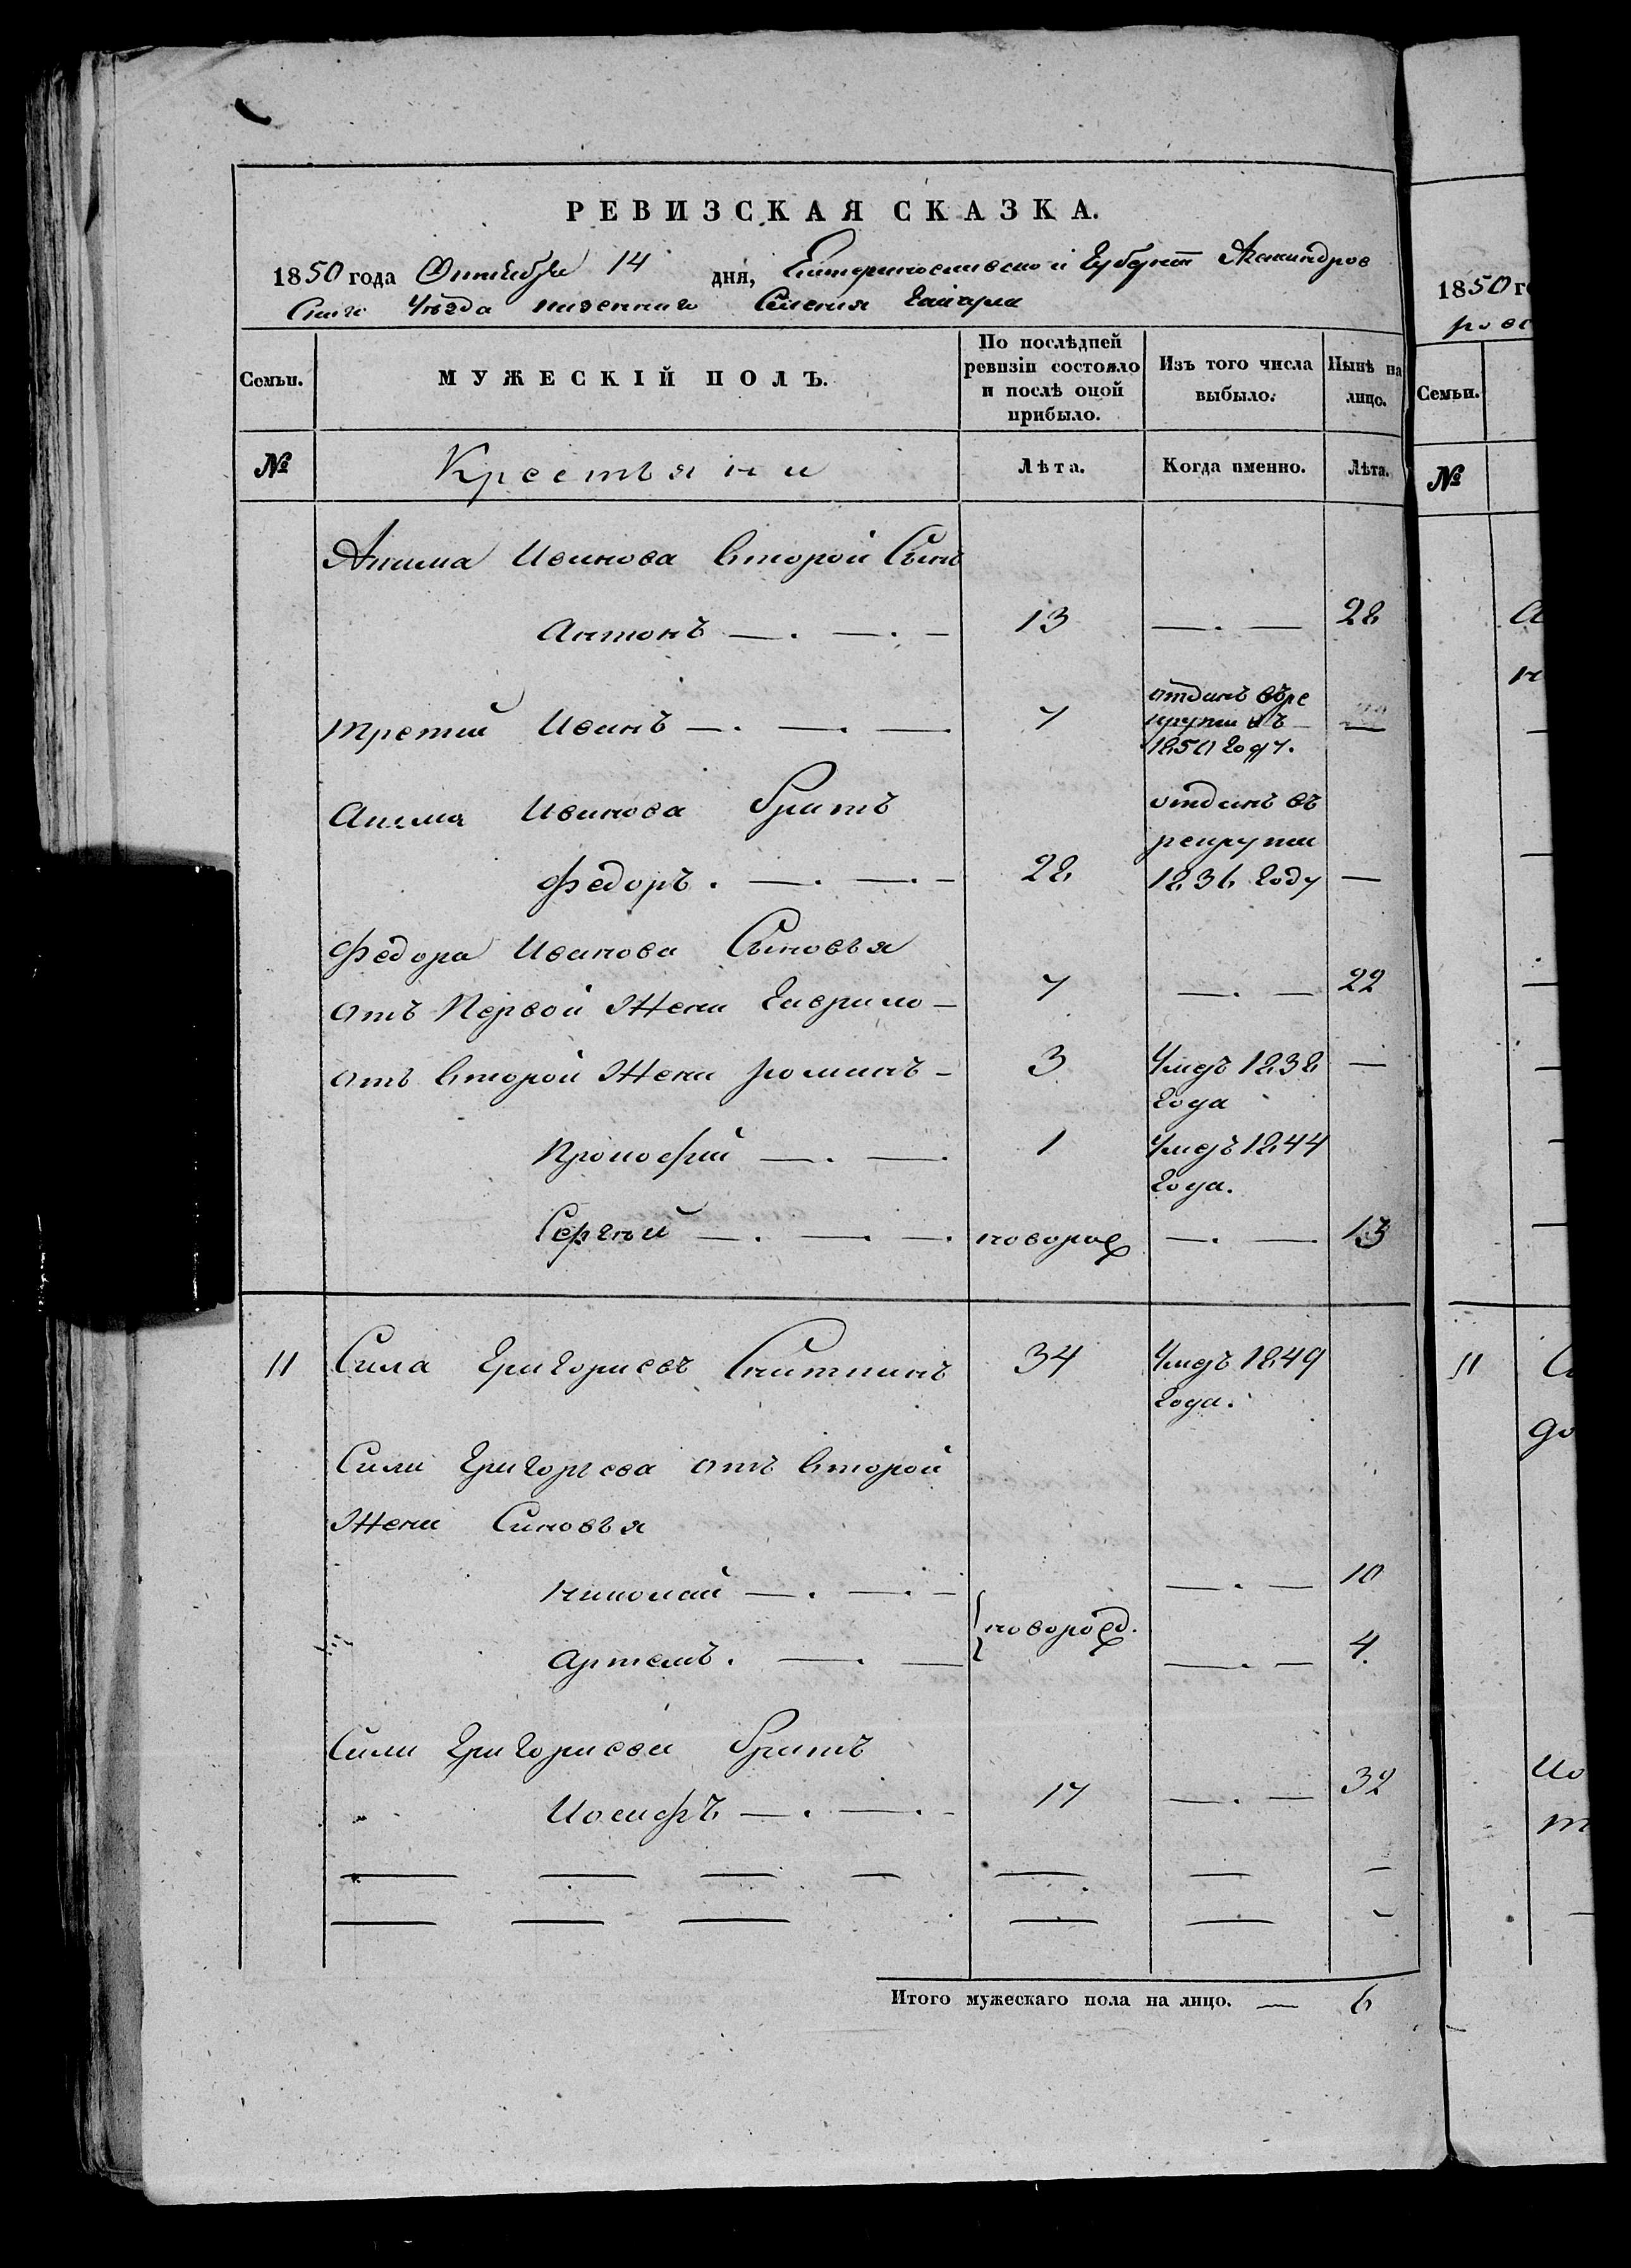 РЕВИЗСКАЯ СКАЗКА.
1850 года Октября 14 дня, Екатеринославской Губерніи Александров
скаго Уѣзда казеннаго Селенія Гайчула
Семьи.
МУЖЕСКІЙ ПОЛЪ.
По послѣдней ревизіи состояло и послѣ оной прибыло.
Изъ того числа выбыло.
Нынѣ на лицо.
№
Крестьяни
Лѣта.
Когда именно.
Лѣта.
Акима Иванова второй Сынъ
Антонъ —. —. — 13 —. — 28
третий Иванъ —. —. — 7 отданъ въ ре
круты въ —
1850 году.
Акима Иванова братъ отданъ въ
рекруты
Федоръ. —. —. — 28 1836 году —
Федора Иванова Сыновья
отъ Первой Жени Гаврило — 7 —. — 22
отъ второй Жени романъ — 3 Умеръ 1838 —
года
Прокофий —. —. 1 Умеръ 1844
года.
Сергѣй —. —. —. новорож —. —. 13
11 Сила Григорьевъ Сниткинъ 34 Умеръ 1849
года.
Сили Григорьева отъ второй
Жени Синовья
николай —. —. — —. — 10
новорожд.
артемъ. —. — —. — 4.
Сили Григорьева братъ
Иосифъ —. —. — 17 —. — 32
Итого мужескаго пола на лицо. — 6
1850 го
ровс
Семьи.
№
11